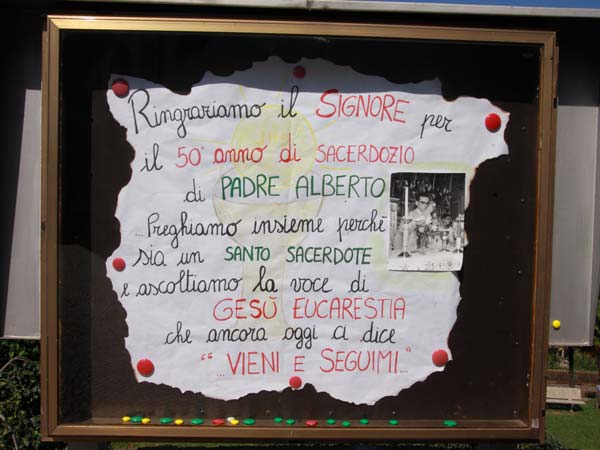 Ringraziamo il SIGNORE per
il 50° anno di SACERDOZIO
di PADRE ALBERTO
...Preghiamo insieme perchè
sia un SANTO SACERDOTE
e ascoltiamo la voce di
GESÙ EUCARESTIA
che ancora oggi ci dice
"...VIENI E SEGUIMI..."